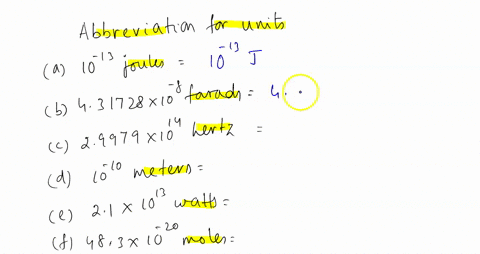 Abbreviation for units
(a) 10⁻¹³ joules = 10⁻¹³ J
(b) 4.31728 × 10⁻⁸ farads = 4.
(c) 2.9979 × 10¹⁴ hertz =
(d) 10⁻¹⁰ meters =
(e) 2.1 × 10¹³ watts =
(f) 48.3 × 10⁻²⁰ moles =